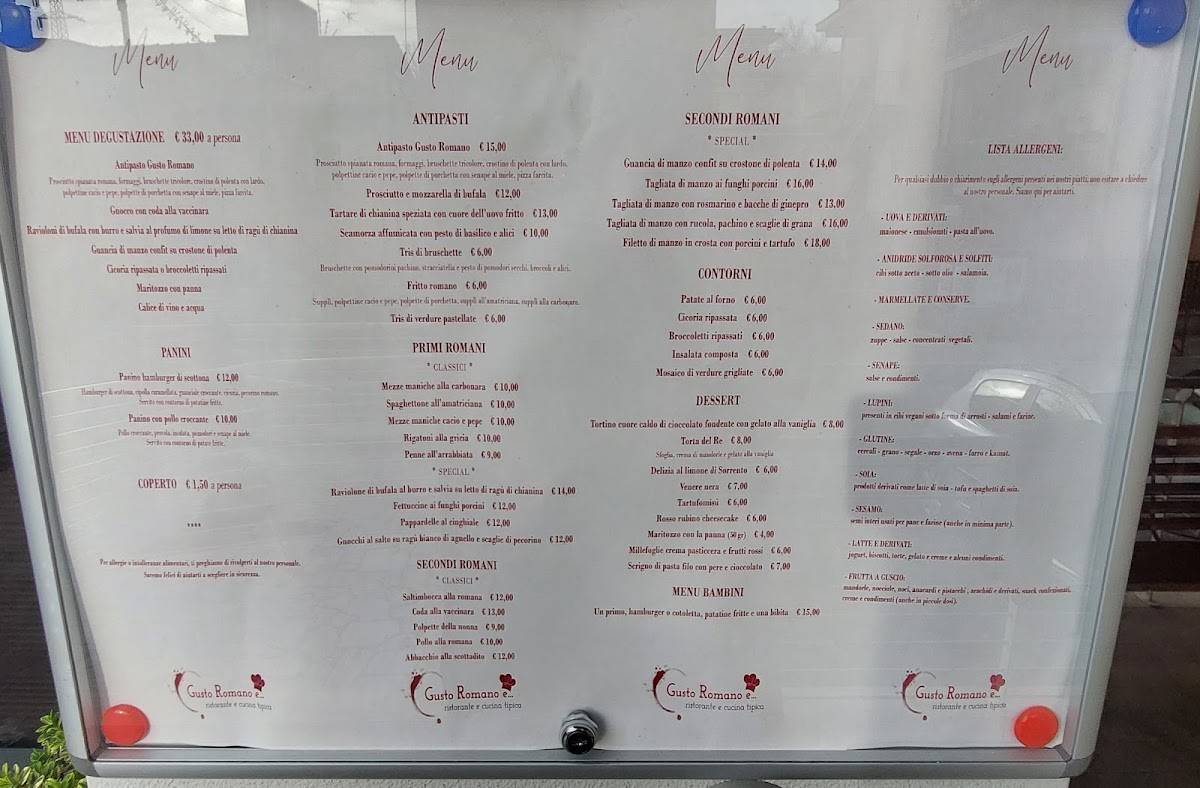 Menu
MENU DEGUSTAZIONE € 33,00 a persona
Antipasto Gusto Romano
Prosciutto spianata romana, formaggi, bruschette tricolore, crostino di polenta con lardo,
polpettine cacio e pepe, polpette di porchetta con senape al miele, pizza farcita.
Gnocco con coda alla vaccinara
Ravioloni di bufala con burro e salvia al profumo di limone su letto di ragù di chianina
Guancia di manzo confit su crostone di polenta
Cicoria ripassata o broccoletti ripassati
Maritozzo con panna
Calice di vino e acqua
PANINI
Panino hamburger di scottona € 12,00
Hamburger di scottona, cipolla caramellata, guanciale croccante, cicoria, pecorino romano.
Servito con contorno di patatine fritte.
Panino con pollo croccante € 10,00
Pollo croccante, provola, insalata, pomodori e senape al miele.
Servito con contorno di patate fritte.
COPERTO € 1,50 a persona
****
Per allergie o intolleranze alimentari, ti preghiamo di rivolgerti al nostro personale.
Saremo felici di aiutarti a scegliere in sicurezza.
Gusto Romano e...
ristorante e cucina tipica
Menu
ANTIPASTI
Antipasto Gusto Romano € 15,00
Prosciutto spianata romana, formaggi, bruschette tricolore, crostino di polenta con lardo,
polpettine cacio e pepe, polpette di porchetta con senape al miele, pizza farcita.
Prosciutto e mozzarella di bufala €12,00
Tartare di chianina speziata con cuore dell'uovo fritto € 13,00
Scamorza affumicata con pesto di basilico e alici € 10,00
Tris di bruschette € 6,00
Bruschette con pomodorini pachino, stracciatella e pesto di pomodori secchi, broccoli e alici.
Fritto romano € 6,00
Supplì, polpettine cacio e pepe, polpette di porchetta, supplì all'amatriciana, supplì alla carbonara.
Tris di verdure pastellate € 6,00
PRIMI ROMANI
" CLASSICI "
Mezze maniche alla carbonara € 10,00
Spaghettone all'amatriciana € 10,00
Mezze maniche cacio e pepe € 10,00
Rigatoni alla gricia € 10,00
Penne all'arrabbiata € 9,00
" SPECIAL "
Raviolone di bufala al burro e salvia su letto di ragù di chianina € 14,00
Fettuccine ai funghi porcini € 12,00
Pappardelle al cinghiale € 12,00
Gnocchi al salto su ragù bianco di agnello e scaglie di pecorino € 12,00
SECONDI ROMANI
" CLASSICI "
Saltimbocca alla romana € 12,00
Coda alla vaccinara € 13,00
Polpette della nonna € 9,00
Pollo alla romana € 10,00
Abbacchio alla scottadito € 12,00
Gusto Romano e...
ristorante e cucina tipica
Menu
SECONDI ROMANI
" SPECIAL "
Guancia di manzo confit su crostone di polenta € 14,00
Tagliata di manzo ai funghi porcini € 16,00
Tagliata di manzo con rosmarino e bacche di ginepro € 13,00
Tagliata di manzo con rucola, pachino e scaglie di grana € 16,00
Filetto di manzo in crosta con porcini e tartufo € 18,00
CONTORNI
Patate al forno € 6,00
Cicoria ripassata € 6,00
Broccoletti ripassati € 6,00
Insalata composta € 6,00
Mosaico di verdure grigliate € 6,00
DESSERT
Tortino cuore caldo di cioccolato fondente con gelato alla vaniglia € 8,00
Torta del Re € 8,00
Sfoglia, crema di mandorle e gelato alla vaniglia
Delizia al limone di Sorrento € 6,00
Venere nera € 7,00
Tartufomisù € 6,00
Rosso rubino cheesecake € 6,00
Maritozzo con la panna (50 gr) € 4,00
Millefoglie crema pasticcera e frutti rossi € 6,00
Scrigno di pasta filo con pere e cioccolato € 7,00
MENU BAMBINI
Un primo, hamburger o cotoletta, patatine fritte e una bibita € 15,00
Gusto Romano e...
ristorante e cucina tipica
Menu
LISTA ALLERGENI:
Per qualsiasi dubbio o chiarimento sugli allergeni presenti nei nostri piatti, non esitare a chiedere
al nostro personale. Siamo qui per aiutarti.
- UOVA E DERIVATI:
maionese - emulsionati - pasta all'uovo.
- ANIDRIDE SOLFOROSA E SOLFITI:
cibi sotto aceto - sotto olio - salamoia.
- MARMELLATE E CONSERVE.
- SEDANO:
zuppe - salse - concentrati vegetali.
- SENAPE:
salse e condimenti.
- LUPINI:
presenti in cibi vegani sotto forma di arrosti - salami e farine.
- GLUTINE:
cereali - grano - segale - orzo - avena - farro e kamut.
- SOIA:
prodotti derivati come latte di soia - tofu e spaghetti di soia.
- SESAMO:
semi interi usati per pane e farine (anche in minima parte).
- LATTE E DERIVATI:
yogurt, biscotti, torte, gelato e creme e alcuni condimenti.
- FRUTTA A GUSCIO:
mandorle, nocciole, noci, anacardi e pistacchi , arachidi e derivati, snack confezionati,
creme e condimenti (anche in piccole dosi).
Gusto Romano e...
ristorante e cucina tipica